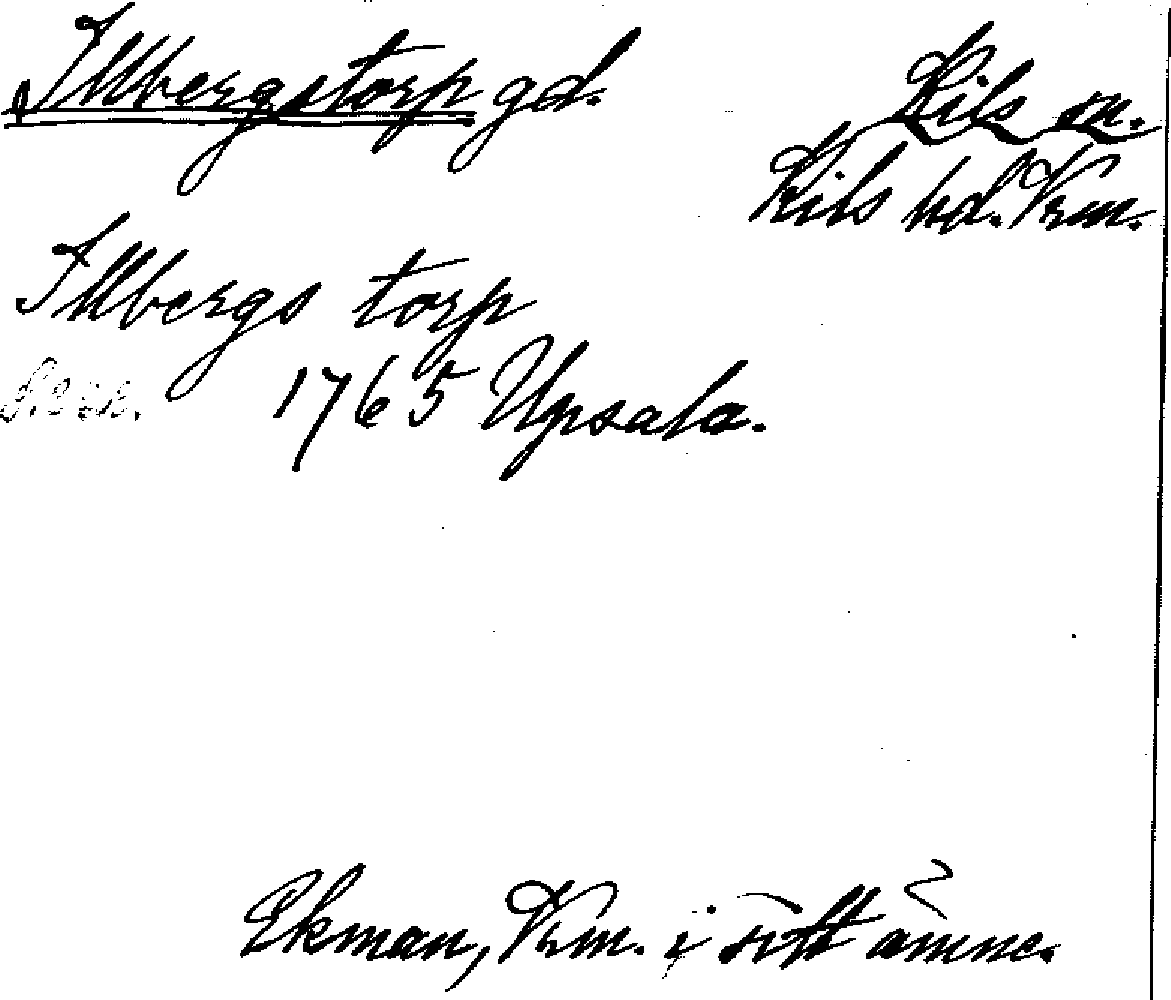 Illbergstorp gd. Kils sn.
Kils hd. Vrm.
Illbergs torp
1765 Upsala.
Ekman, Vrm. i sitt ämne.